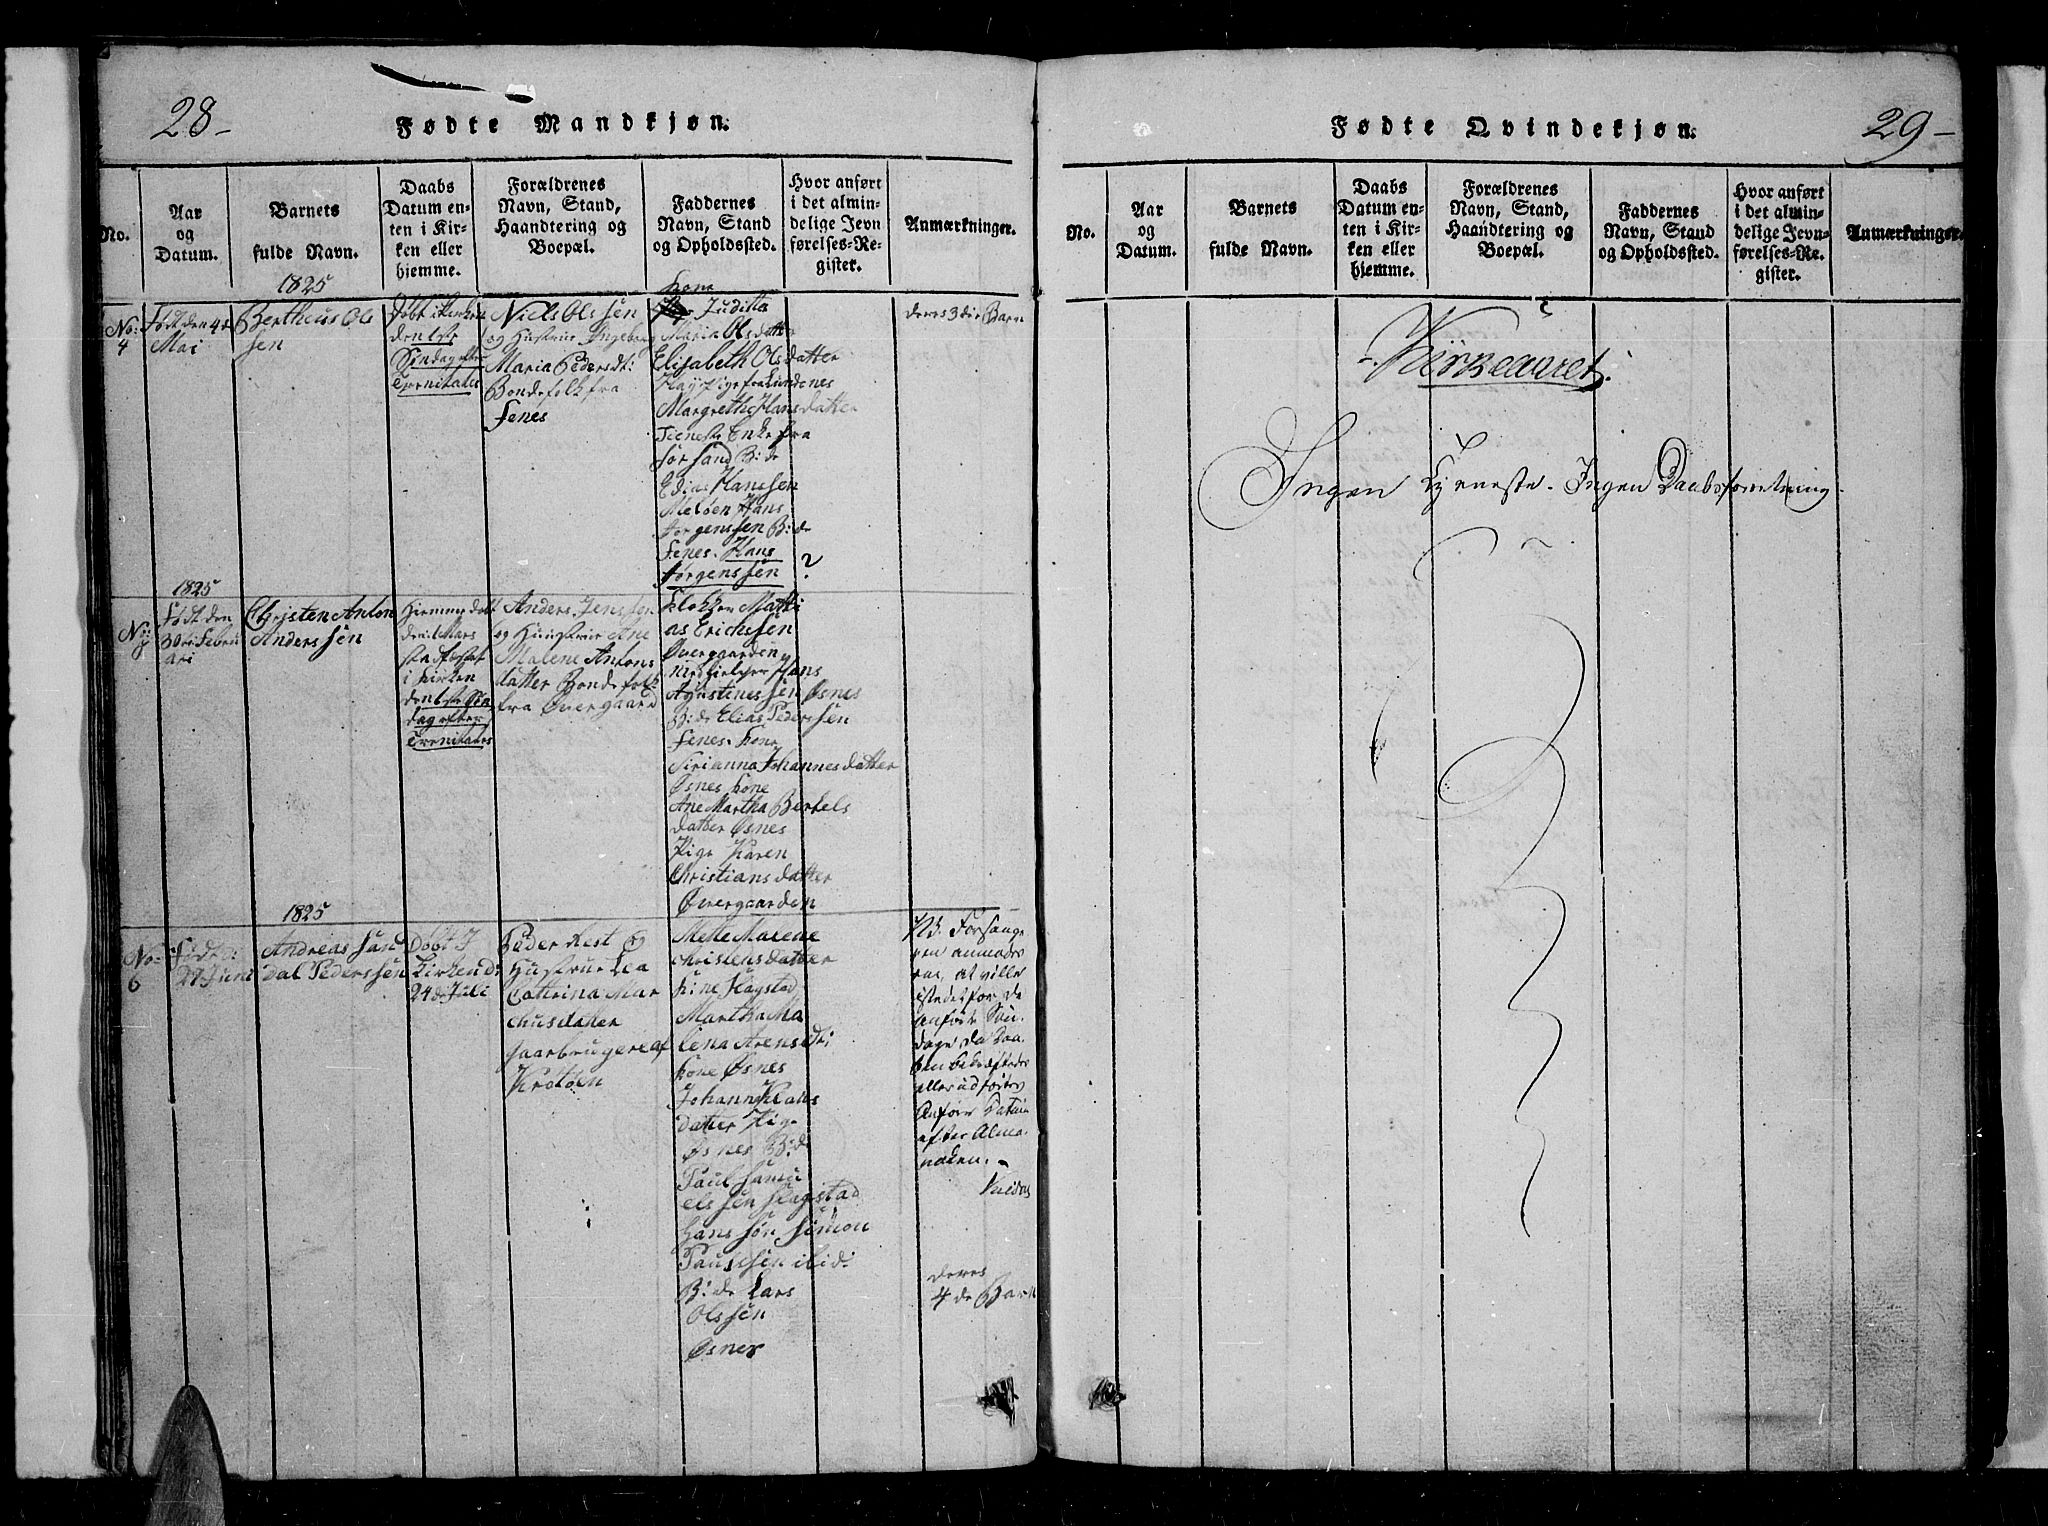 28-
Fødte Mandkjøn.
No.
Aar
og
Datum.
Barnets
fulde Navn.
Daabs
Datum en-
ten i Kir-
ken eller
hjemme.
Forældrenes
Navn, Stand,
Haandtering og
Boepæl.
Faddernes
Navn, Stand
og Opholdssted.
Hvor anført
i det almin-
delige Jevn
førelses-Re-
gister.
Anmærkninger.
1825
No:
4
Født den 4de
Mai
Bertheus Ols
sen
Døbt i Kirken
den 1ste
Søndag efter
Trenitates
Niels Olssen
og Hustrue Ingeborg
Maria Pedersdt:
Bondefolk fra
Fenes
Kone
Juditta
Maria Olsdatter
Elisabeth Olsdatter
Pige fra Lundenes
Margrethe Hansdatter
Tieneste Enke fra
Sørsand B:de
Edias Hanssen
Meløen Hans
Jørgenssen B:de
Fenes. Hans
Jørgenssen ?
deres 3die Barn
1825
No:
5
Født den
30te Febru
ari
Christen Anton
Anderssen
Hiemmedøbt
den 1 Mars
stadfæstet
i Kirken
den 1ste Søn
dag efter
Trenitates
Anders Jenssen
og Hustrue Ane
Malene Antons
datter Bondefolk
fra Øvergaard
Klokker Matti
as Erichssen
Øvergaarden
Medhielper Hans
Agustinessen Øsnes
B:de Elias Pederssen
Fenes. Kone
Sirianna Johannesdatter
Øsnes Kone
Ane Martha Bertels
datter Øsnes
Pige Karen
Christiansdatter
Øvergaarden
1825
No:
6
Født d:
27 Juni
Andreas San
dal Pederssen
Døbt I
Kirken d:
24de Juli
Peder Rest og
Hustrue Lea
Cathrina Mar
chusdatter
Jaarbrugere af
Krotøen
Mette Marene
Christensdatter
Kone Flagstad
Martha Ma
lena Arensdt:
Kone Øsnes
Johanna Klaus
datter Pige
Øsnes B:de
Paul Samu
elssen Flagstad
Hans Søn Simon
Paulssen ibid:
B:de Lars
Olssen
Øsnes
NB. Forsange
ren anmodes
om, at ville
istedet for de
anførte Søn-
dage, da Daa-
ben bekræftedes
eller udførtes
Anføre Datum
efter Alma-
naken. -
deres
4de Barn
29-
Fødte Qvindekjøn.
No.
Aar
og
Datum.
Barnets
fulde Navn.
Daabs
Datum en-
ten i Kir-
ken eller
hjemme.
Forældrenes
Navn, Stand,
Haandtering og
Boepæl.
Faddernes
Navn, Stand
og Opholdssted.
Hvor anført
i det almin-
delige Jevn-
førelses-Re-
gister.
Anmærkninger.
Kirkeauret.
Ingen Tjeneste. Ingen Daabsforretning.